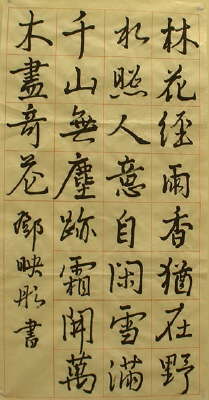 林花經雨香猶在野
水照人意自闲雪滿
千山無塵跡霜開萬
木盡奇花鄧映彤書